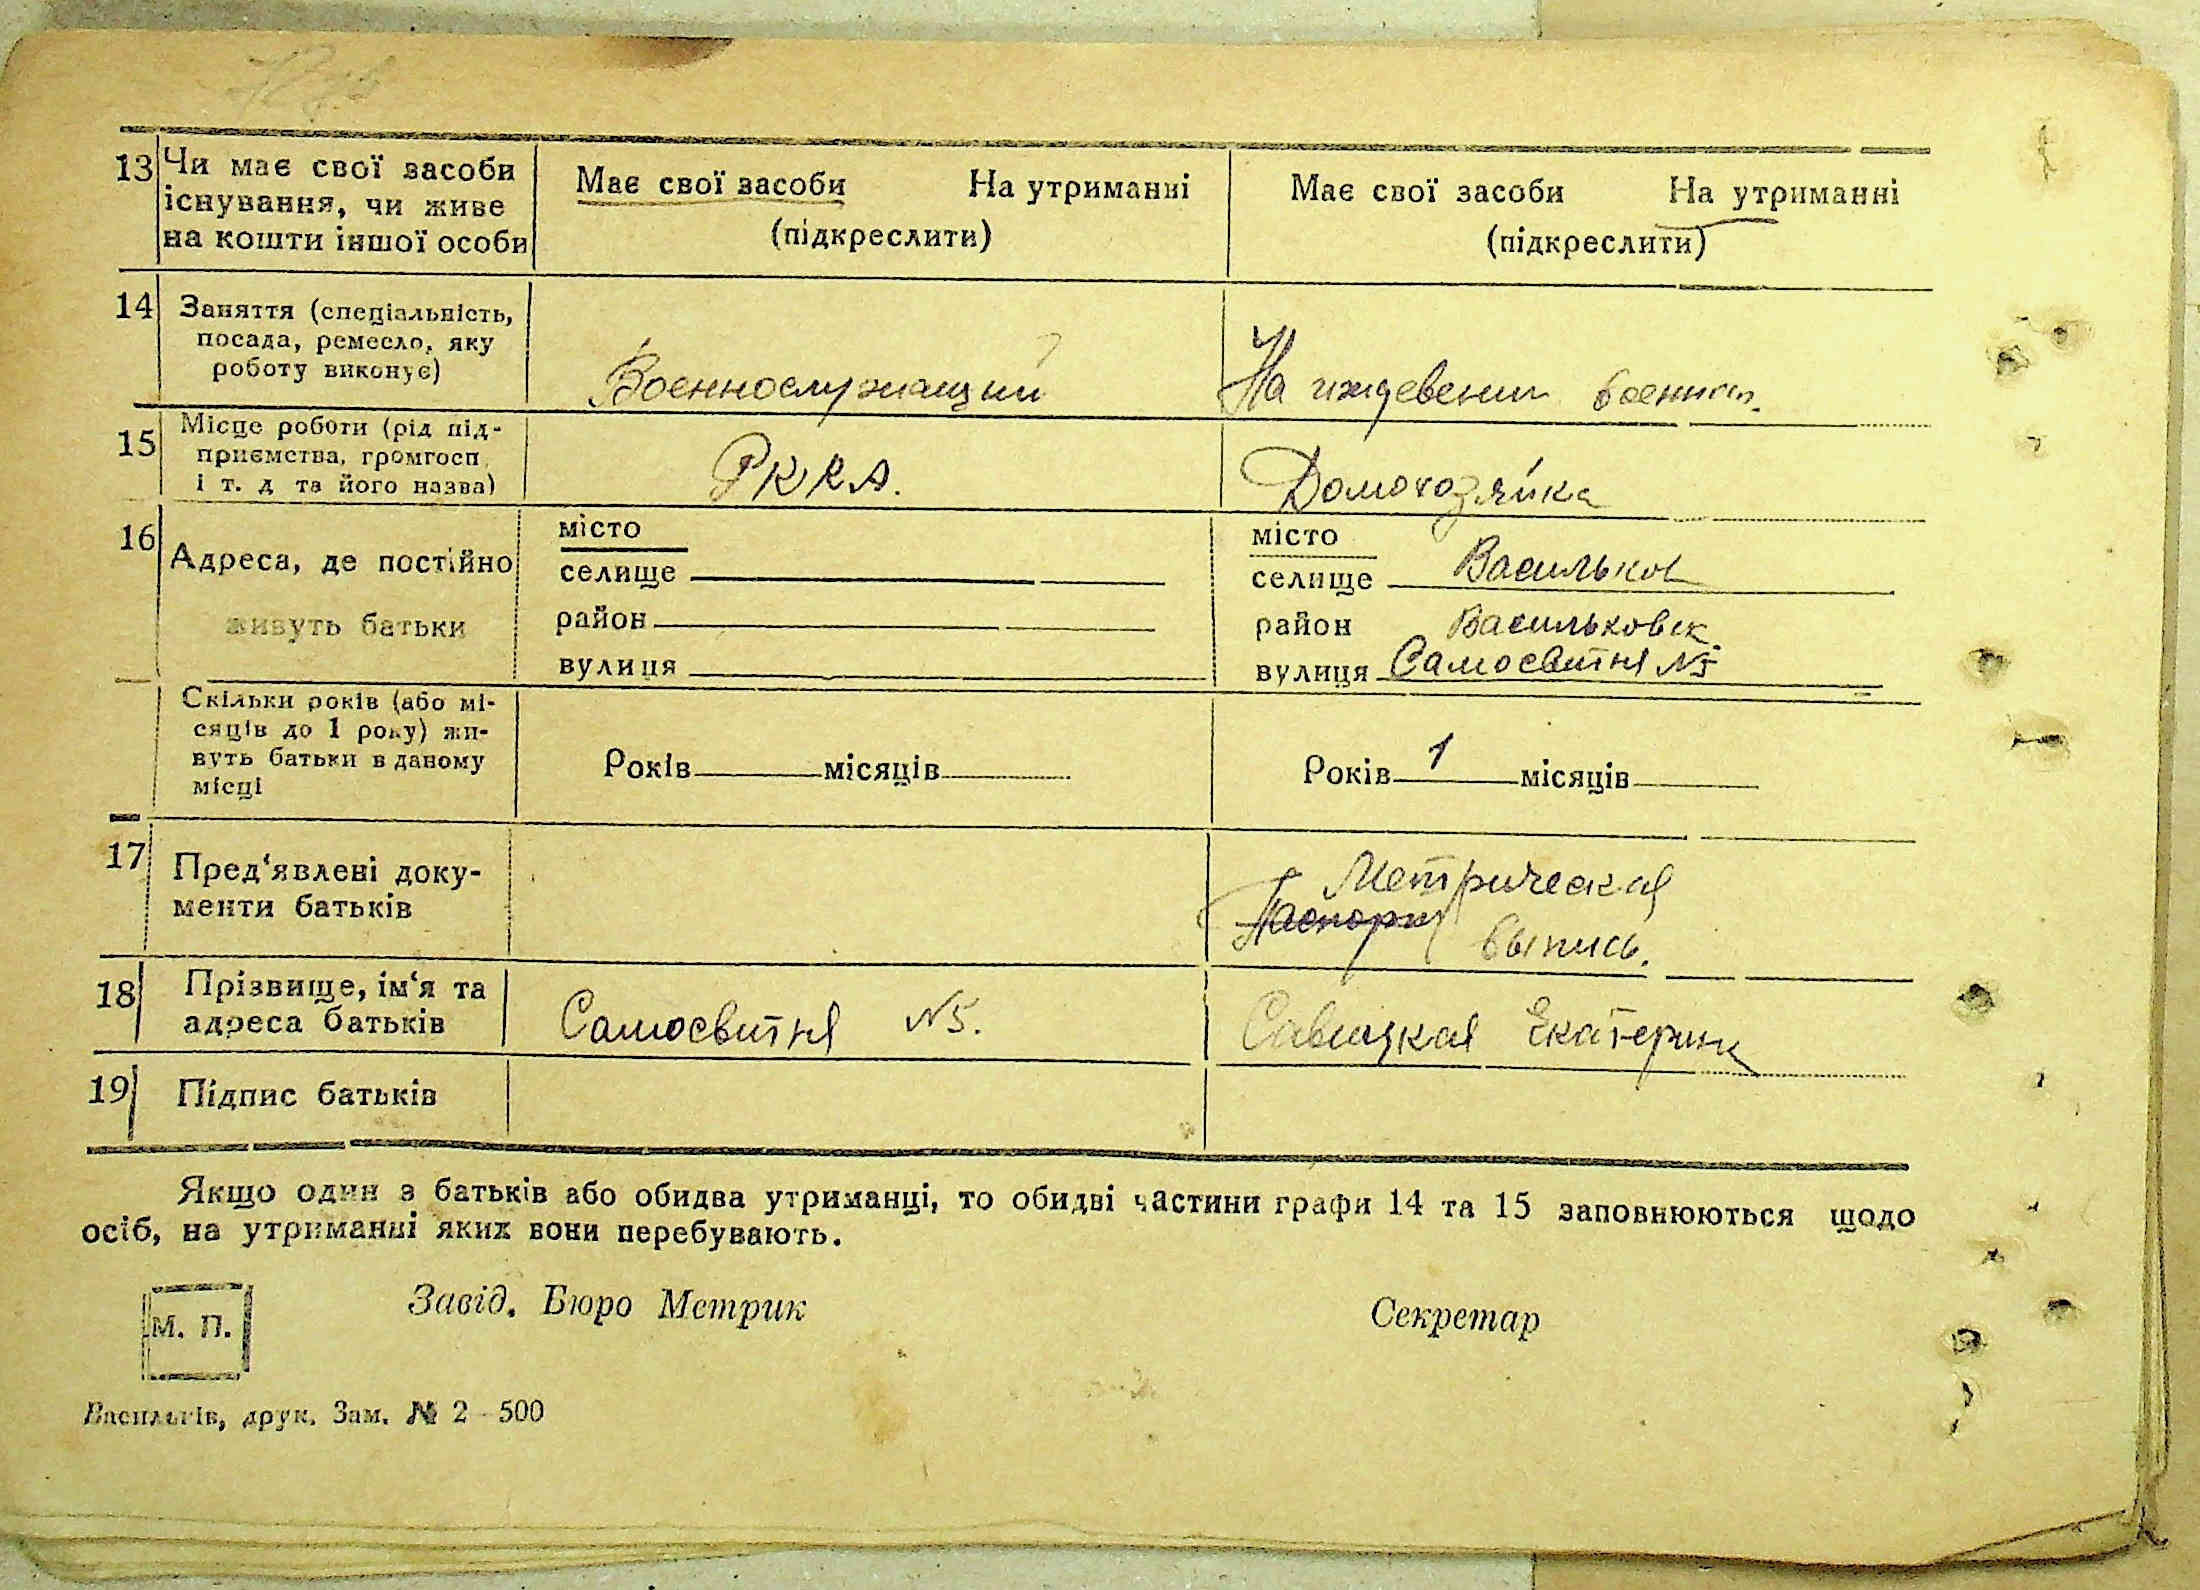 13 Чи має свої засоби існування, чи живе на кошти іншої особи
Має свої засоби На утриманні
(підкреслити)
Має свої засоби На утриманні
(підкреслити)
14 Заняття (спеціальність,
посада, ремесло, яку
роботу виконує)
Военнослужащий
На иждевении военносл.
15 Місце роботи (рід під-
приємства, громгосп
і т. д та його назва)
РККА.
Домохозяйка
16 Адреса, де постійно
живуть батьки
місто
селище
район
вулиця
місто
селище Васильков
район Васильковск
вулиця Самосвитня №5
Скільки років (або мі-
сяців до 1 року) жи-
вуть батьки в даному
місці
Років місяців
Років 1 місяців
17 Пред‘явлені доку-
менти батьків
Метрическая
Паспорт
выпись.
18 Прізвище, ім‘я та
адреса батьків
Самосвитня №5.
Савицкая Екатерина
19 Підпис батьків
Якщо один з батьків або обидва утриманці, то обидві частини графи 14 та 15 заповнюються щодо
осіб, на утриманні яких вони перебувають.
М. П.
Завід. Бюро Метрик
Секретар
Васильків, друк. Зам. № 2—500